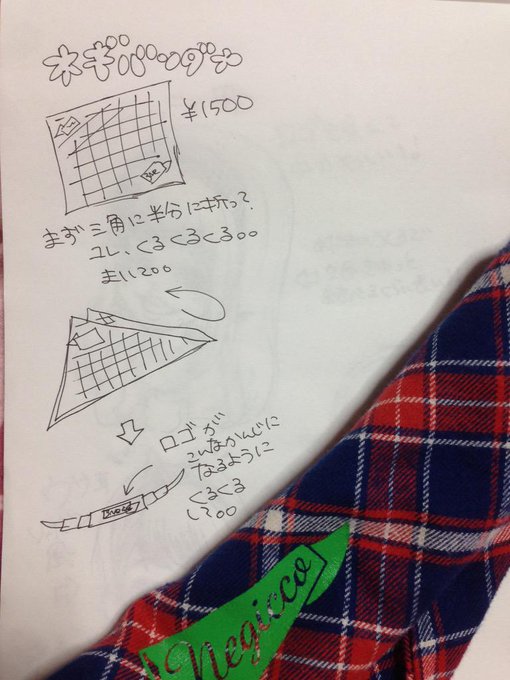 ネギバンダナ
¥1500
まず三角に半分に折って、
くるくるくる
ロゴが
こんなかんじに
なるように
くるくる
Negicco